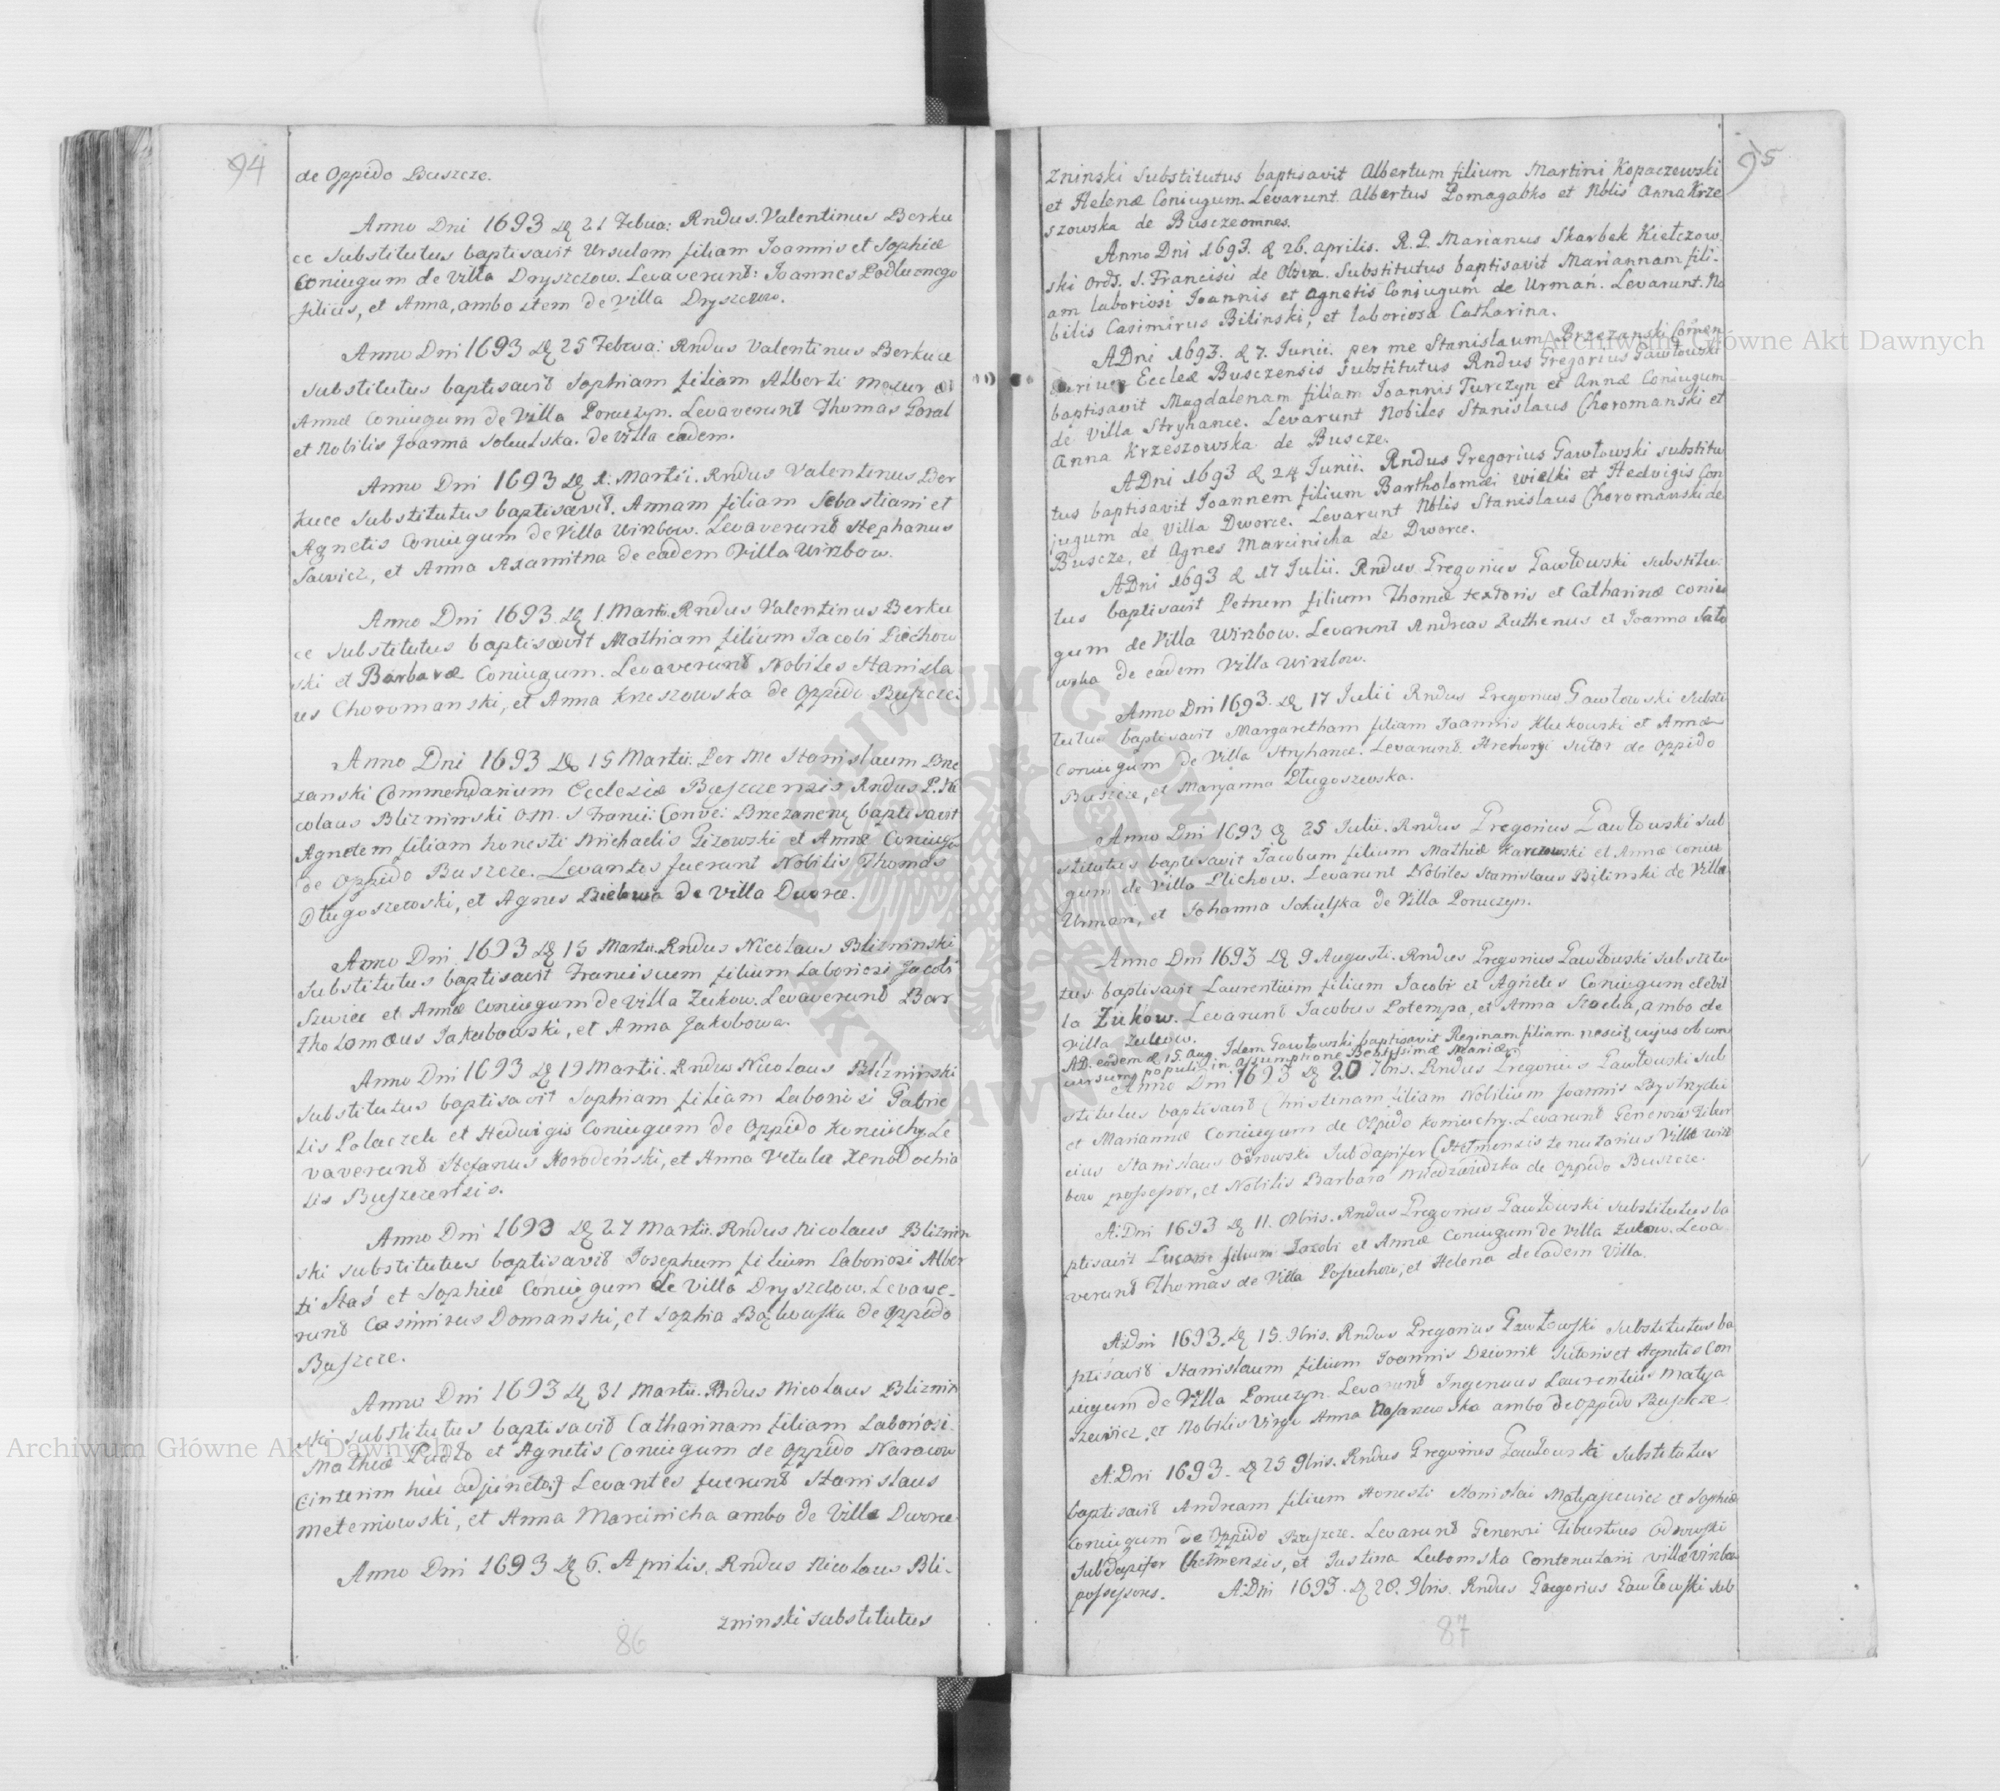 94
de Oppido Buszcze.
Anno Dni 1693 D 21 Febua: Rndus. Valentinus Berku
ce substitutus baptisavit Ursulam filiam Joannis et Sophiæ
Coniugum de Villa Dryszczow. Levaverunt: Joannes Podluznego
filius, et Anna, ambo item de villa Dryszczow.
Anno Dni 1693 D 25 Februa: Rndus Valentinus Berkuce
substitutus baptisavit Sophiam filiam Alberti Mazur et
Annæ Coniugum de Villa Poruczyn. Levaverunt Thomas Goral
et Nobilis Joanna Sokulska. de Villa eadem.
Anno Dni 1693 D 1. Martii. Rndus Valentinus Ber
kuce substitutus baptisavit. Annam filiam Sebastiani et
Agnetis Coniugum de Villa Wirzbow. Levaverunt Stephanus
Sawicz, et Anna Axamitna de eadem Villa Wirzbow.
Anno Dni 1693 D 1. Marti. Rndus Valentinus Berku
ce substitutus baptisavit Mathiam filium Jacobi Piechow
ski et Barbaræ Coniugum. Levaverunt Nobiles Stanisla
us Choromanski, et Anna Krzeszowska de Oppido Buszcze.
Anno Dni 1693 D 15 Martii. Per me Stanislaum Brze
zanski Commendarium Ecclesiæ Buszczensis, Rndus P. Ni
colaus Blizninski O.M. S. Franci: Conve: Brzezanen baptisavit
Agnetem filiam honesti Michaelis Gizowski et Annæ Coniugu
de Oppido Buszcze. Levantes fuerunt Nobilis Thomas
Długoszewski, et Agnes Bielowa de Villa Dworce.
Anno Dni 1693 D 15 Martii. Rndus Nicolaus Blizninski
substitutus baptisavit Franciscum filium Laboriosi Jacobi
Szwiec et Annæ Coniugum de Villa Zukow. Levaverunt Bar
tholomæus Jakubowski, et Anna Jakubowa.
Anno Dni 1693 D 19 Martii. Rndus Nicolaus Blizninski
substitutus baptisavit Sophiam filiam Laboriosi Gabrie
lis Polaczek et Hedwigis Coniugum de Oppido Koniuchy. Le
vaverunt Stefanus Horodeński, et Anna Vetula Xenodochia
lis Buszczensis.
Anno Dni 1693 D 27 Martii. Rndus Nicolaus Bliznin
ski substitutus baptisavit Josephum filium Laboriosi Alber
ti Staś et Sophiæ Coniugum de Villa Dryszczow. Levave-
runt Casimirus Domanski, et Sophia Bąkowska de Oppido
Buszcze.
Anno Dni 1693 D 31 Martii. Rndus Nicolaus Bliznin
ski substitutus baptisavit Catharinam filiam Laboriosi
Mathiæ et Agnetis Coniugum de Oppido Naraiow
(interim huic adjuncto.) Levantes fuerunt Stanislaus
Meteniowski, et Anna Marcinicha ambo de Villa Dworce.
Anno Dni 1693 D 6. Aprilis. Rndus Nicolaus Bli-
zninski substitutus
86
95
zninski Substitutus baptisavit Albertum filium Martini Kopaczewski
et Helenæ Coniugum. Levarunt Albertus Pomagabko et Nblis Anna Krze
szowska de Buscze omnes.
Anno Dni 1693. D 26. aprilis. R. P. Marianus Skarbek Kiełczow
ski Ord. S. Francisci de Obsva. Substitutus baptisavit Mariannam fili-
am laboriosi Joannis et agnetis Conjugum de Urmań. Levarunt. No
bilis Casimirus Bilinski, et laboriosa Catharina.
ADni 1693. D 7. Junii. per me Stanislaum Brzezanski Comen
darium Eccleæ Busczensis Substitutus Rndus Gregorius Gawłowski
baptisavit Magdalenam filiam Joannis Turczyn et Annæ Coniugum
de Villa Stryhance. Levarunt Nobiles Stanislaus Choromanski et
Anna Krzeszowska de Buscze.
ADni 1693 D 24 Junii. Rndus Gregorius Gawłowski substitu
tus baptisavit Joannem filium Bartholomæi Wielki et Hedvigis Con
jugum de Villa Dworce. Levarunt Nblis Stanislaus Choromanski de
Buscze, et Agnes Marcinicha de Dworce.
ADni 1693 D 17 Julii. Rndus Gregorius Gawłowski substitu-
tus baptisavit Petrum filium Thomæ textoris et Catharinæ coniu
gum de Villa Wirzbow. Levarunt Andreas Ruthenus et Joanna Sato
wska de eadem Villa Wirzbow.
Anno Dni 1693. D 17 Julii Rndus Gregorius Gawłowski substi
tutus baptisavit Margaretham filiam Joannis Klukowski et Annæ
Coniugum de Villa Stryhance. Levarunt. Hrehory Sutor de Oppido
Buszcze, et Maryanna Długoszewska.
Anno Dni 1693 D 25 Julii. Rndus Gregorius Gawłowski sub
stitutus baptisavit Jacobum filium Mathiæ Karczewski et Annæ Coniu
gum de Villa Plichow. Levarunt Nobiles Stanislaus Bilinski de Villa
Urman, et Johanna Sokulska de Villa Poruczyn.
Anno Dni 1693 D 9 Augusti. Rndus Gregorius Gawłowski substitu
tus baptisavit Laurentium filium Jacobi et Agnetis Coniugum de Vil
la Zukow. Levarunt Jacobus Potempa, et Anna Szocka, ambo de
Villa Zukow.
AD. eodem D 15. Aug. Idem Gawłowski baptisavit Reginam filiam nescit cujus ob con
cursum populi in Assumptione Beatissimæ Mariæ
Anno Dni 1693 D 20 7bris. Rndus Gregorius Gawłowski sub
stitutus baptisavit Christinam filiam Nobilium Joannis Bystrzycki
et Mariannæ Coniugum de Oppido Koniuchy. Levarunt Generosus Tibur
cius Stanislaus Odrowski Subdapifer Chełmensis tenutarius Villæ Wirz
bow possessor, et Nobilis Barbara Niedzwiedzka de Oppido Buszcze.
A: Dni 1693 D 11. 8bris. Rndus Gregorius Gawłowski substitutus ba
ptisavit Lucam filium Jacobi et Annæ Coniugum de Villa Zukow. Leva-
verunt Thomas de Villa Posuchow, et Helena de eadem Villa.
A: Dni 1693. D 15. 9bris. Rndus Gregorius Gawłowski substitutus ba
ptisavit Stanislaum filium Joannis Dziomik Sutoris et Agnetis Con
iugum de Villa Poruczyn. Levarunt Ingenuus Laurentius Matya
szewicz, et Nobilis Virgo Anna ambo de Oppido Buszcze.
A: Dni 1693. D 25 9bris. Rndus Gregorius Gawłowski substitutus
baptisavit Andream filium Honesti Stanislai Matyasewicz et Sophiæ
Coniugum de Oppido Buszcze. Levarunt Generosi Tiburtius Odrowski
Subdapifer Chełmensis, et Justina Lubomska Contenutarii villæ Virzbow
possessores. A: Dni 1693. D 28. 9bris. Rndus Gregorius Gawłowski sub
87
Archiwum Główne Akt Dawnych
Archiwum Główne Akt Dawnych
ARCHIWUM GŁÓWNE AKT DAWNYCH